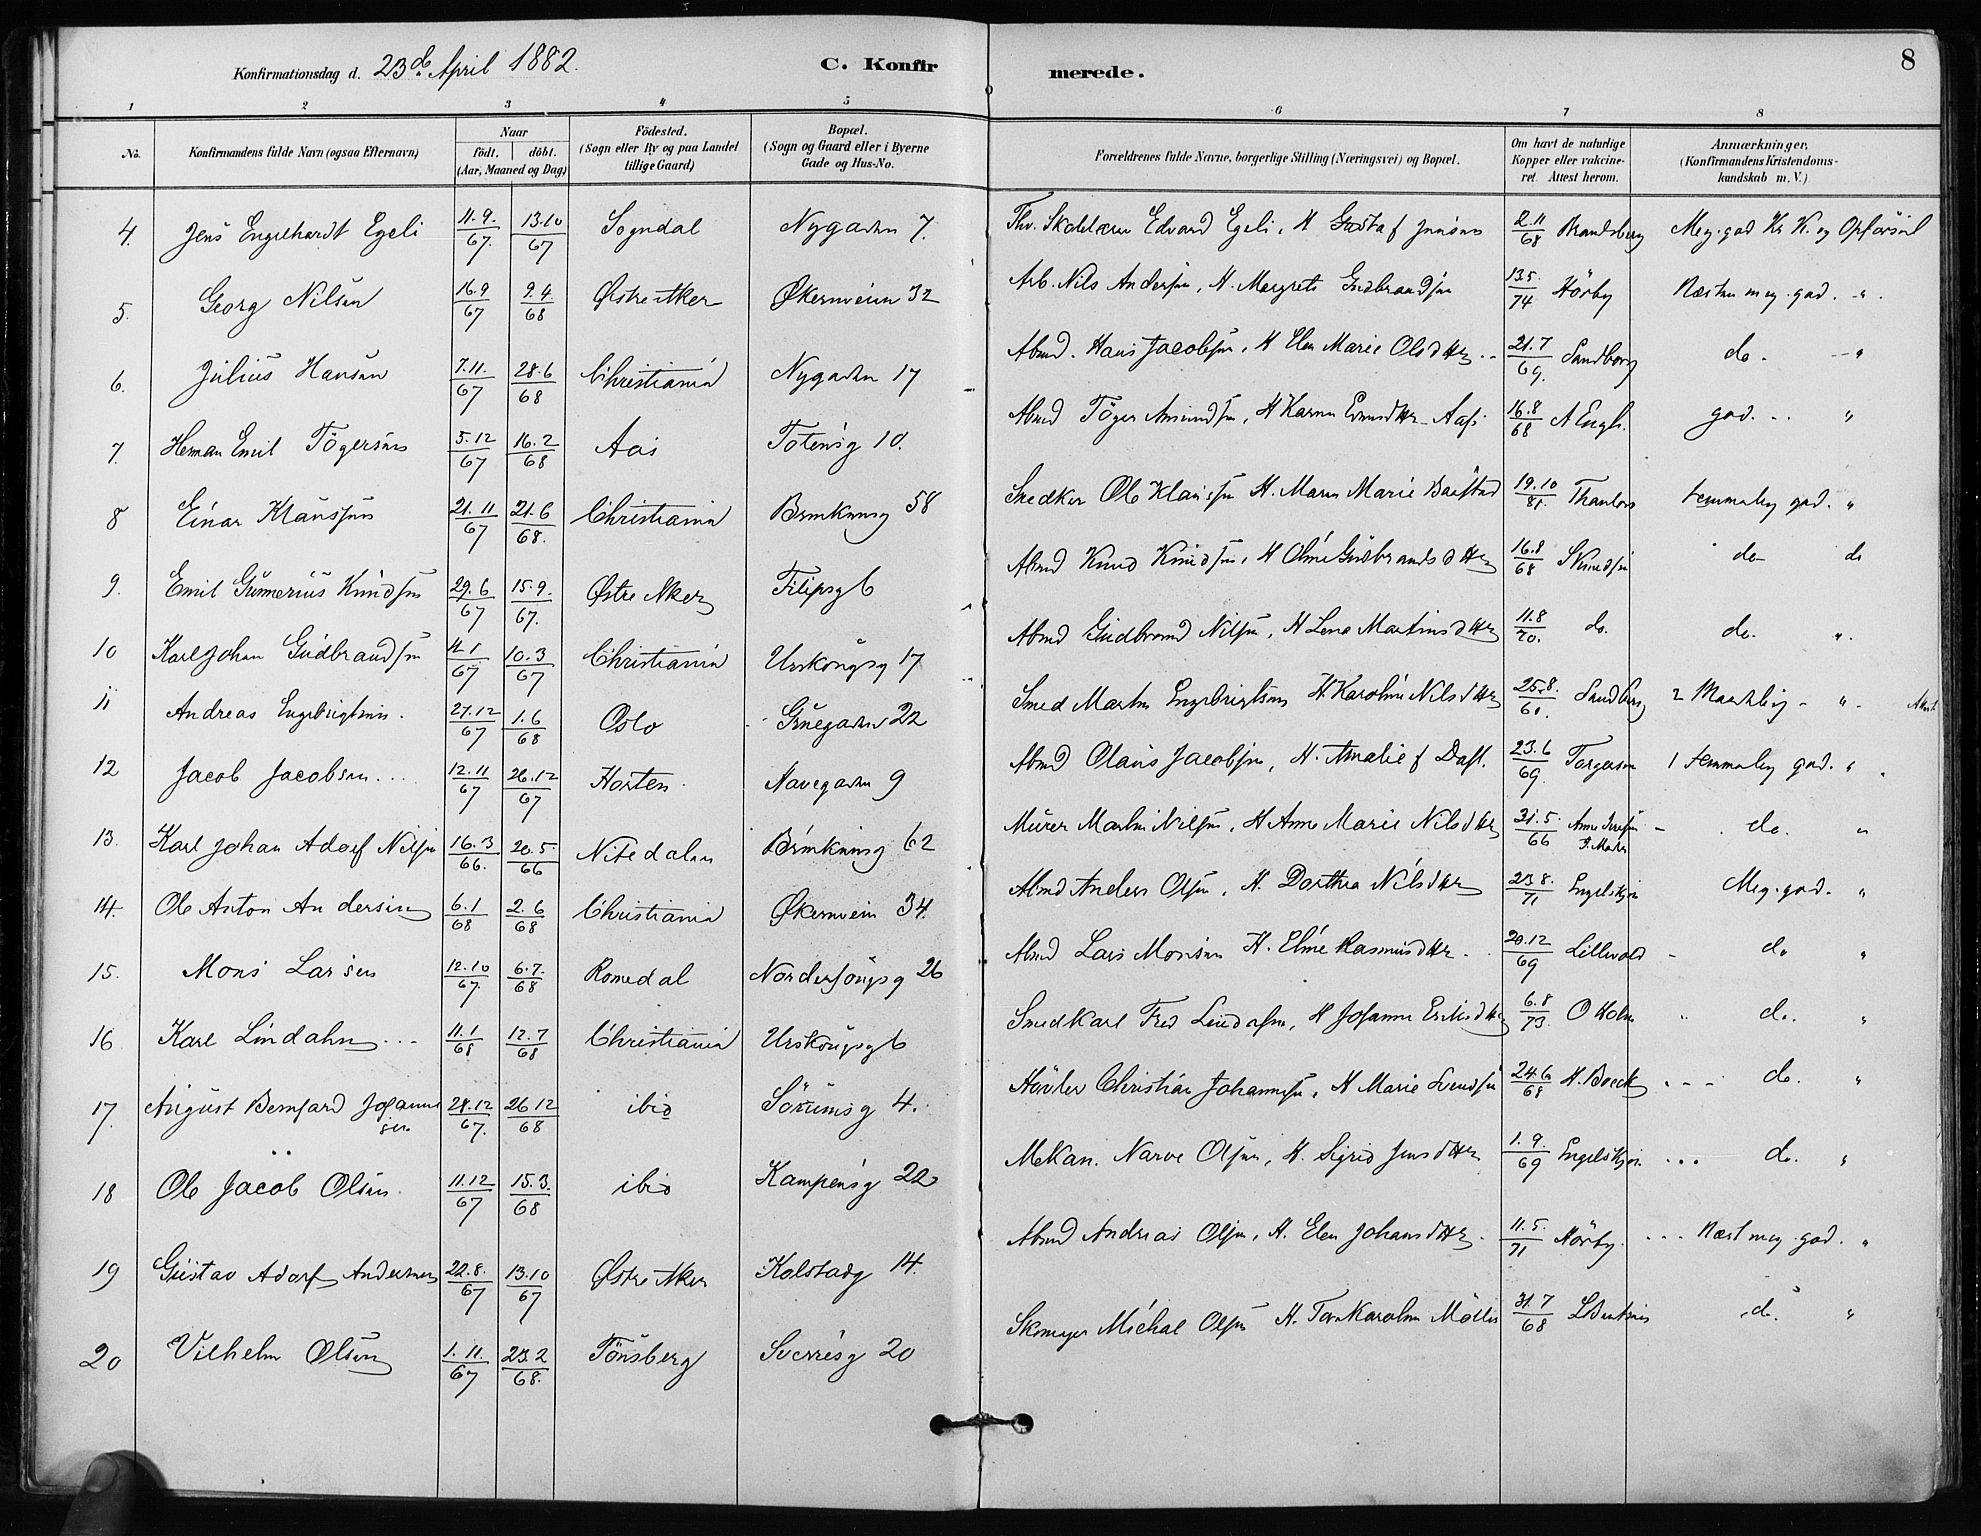 8
Konfirmationsdag d. 23de April 1882. C. Konfirmerede.
1 2 3 4 5 6 7 8
No. Konfirmandens fulde Navn (ogsaa Efternavn) Naar födt. döbt. (Aar, Maaned og Dag) Födested. (Sogn eller By og paa Landet tillige Gaard) Bopæl. (Sogn og Gaard eller i Byerne Gade og Hus-No. Forældrenes fulde Navne, borgerlige Stilling (Næringsvei) og Bopæl. Om havt de naturlige Kopper eller vakcineret. Attest herom. Anmærkninger. (Konfirmandens Kristendomskundskab m. V.)
4. Jens Engelhardt Egeli 11.9./67. 13.10/67 Sogndal Nygaden 7. Skolelærer Edvard Egeli, H 2.11/68 Meg. god Kr. K. og Opförsel
5. Georg Nilsen 16.9/67 9.4./68 Østre Aker Økernveien 32 Arb. Nils Andersen, H. Margrete Gudbrandsen 13.5./74 Hörby Næsten meg. god. "
6. Julius Hansen 7.11./67 28.6/68 Christiania Nygaden 17 Abmd. Hans Jacobsen, H Elen Marie Olsdtter 21.7/69. Sandborg do. "
7. Herman Emil Tögersen 5.12/67 16.2/68 Aas Totensg 10. Abmd Töger Amundsen, H Karen 16.8/68 A Engh. god. "
8 Einar Klaussen 21.11/67 21.6/68. Christiania 58 Snedker Ole Klaussen H. Maren Marie 19.10/81. temmelig god. "
9. Emil Gunnerius Knudsen 29.6/67 15.9./67. Østre Aker Filipsg 6 Abmd Knud Knudsen, H Oline Gudbrandsdtter 16.8/68 do do
10 Karl Johan Gudbrandsen 4.1/67 10.3/67 Christiania Urskougsg 17 Abmd Gudbrand Nilsen, H Lena Martinsdtter 11.8/70. do. do. "
11 Andreas Engebrigtsen. 27.12/67 1.6/68 Oslo Gruegaden 22 Smed Martin Engebrigtsen H. Karoline Nilsdtter 25.8./60. Sandberg 2 Maadelig - "
12 Jacob Jacobsen... 12.11/67 26.12/67 Horten. 9 Abmd Olaus Jacobsen, H. Amalie f Dahl. 23.6/69. Torgersen 1 temmelig god. "
13. Karl Johan Adolf Nilsen 16.3/66. 20.5/66 Nitedalen 62 Murer Martin Nilsen, H Anne Marie Nilsdtter 31.5./66 - do. "
14. Ole Anton Andersen 6.1/68 2.6/68 Christiania Økernveien 34. Abmd Anders Olsen, H. Dorthea Nilsdtter 23.8./71 Engelskjön Meg. god. "
15. Mons Larsen 12.10/67. 6.7./68 Romedal Norderhougsg 26 Abmd Lars Monsen H. Eline Rasmusdtter. 20.12/69 Lillevold - do "
16 Karl Lindahn... 11.1/68 12.7/68 Christiania Urskougsg 6 Smed Karl Fred Lindahn, H Johanne Eriksdtter 6.8/73. O Holm " do. "
17. August Bernhard Johannesen 28.12/67. 26.12/68 ibid Sörumsg 4. Høvler Christian Johannesen, H Marie Svendsen 24.6/68 H. Boeck - - - do. "
18 Ole Jacob Olsen. 11.12/67 15.3./68 ibid Kampensg 22 Mekan. Narve Olsen, H. Sigrid Jensdtter 1.9./69 Engelskjön ... do. "
19 Gustav Adolf Andersen 22.8./67 13.10/67 Østre Aker Kolstadg 14. Abmd Andreas Olsen, H. Elen Johansdtter. 11.5./71 Hörby. ... Næst meg. god. "
20 Vilhelm Olsen 1.11./67 23.2/68. Tönsberg Sverresg 20 Skomager Michal Olsen H. Karoline Möller 31.7/68 do "